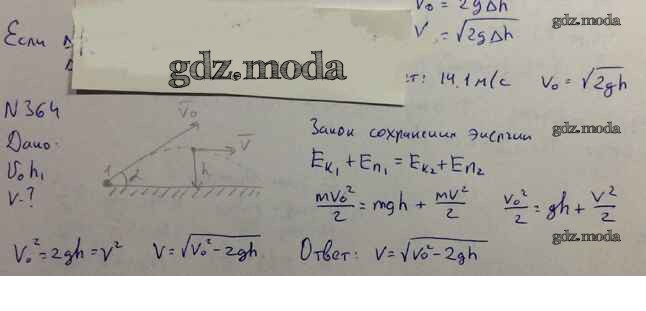 V₀ = 2gΔh
Если
V = √2gΔh
gdz.moda
gdz.moda
14,1 м/с V₀ = √2gh
N 364
Дано:
V₀ h₁
V-?
V̅₀
V̅
1
α
h
Закон сохранения энергии
gdz.moda
Eк₁ + Eп₁ = Eк₂ + Eп₂
mV₀²/2 = mgh + mV²/2 V₀²/2 = gh + V²/2
gdz.moda
V₀² = 2gh = V² V = √V₀² - 2gh
Ответ: V = √V₀² - 2gh